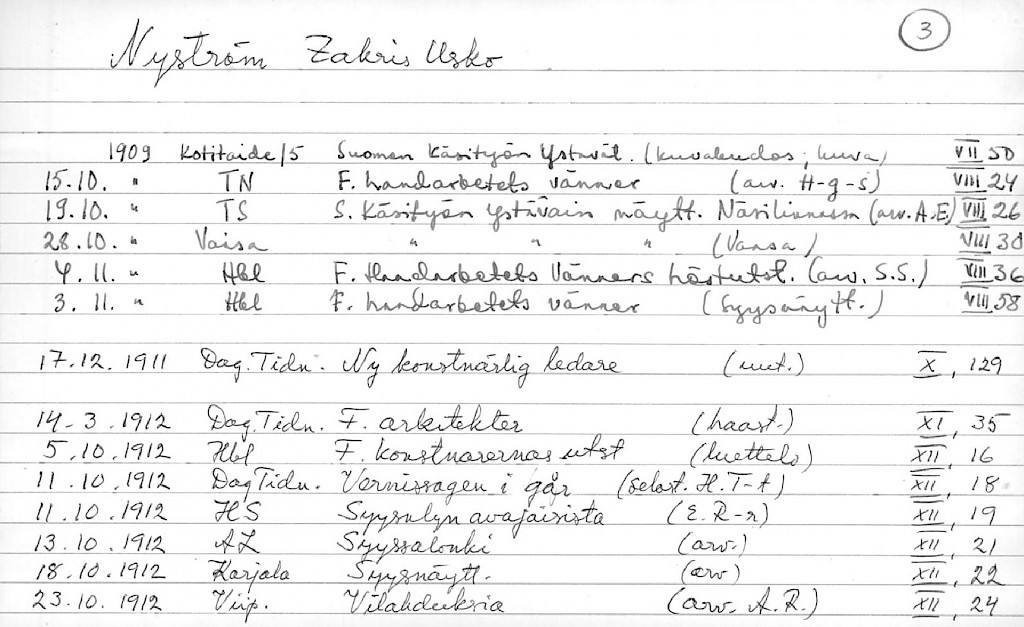 3
Nyström Zakris Usko
1909 Kotitaide/5 Suomen Käsityön Ystävät. (kuvakudos; kuva) VII 50
15.10. " TN F. handarbetets vänner (arv. H-g-s) VIII 24
19.10. " TS S. Käsityön Ystäväin näytt. Näsilinnassa (arv. A.E) VIII 26
28.10. " Vaasa " " " (Vaasa) VIII 30
4.11. " Hbl F. Handarbetets Vänners höstutst. (arv. S.S.) VIII 36
3.11. " Hbl F. handarbetets vänner (Syysnäytt.) VIII 58
17.12.1911 Dag.Tidn. Ny konstnärlig ledare (uut.) X, 129
14.3.1912 Dag.Tidn. F. arkitekter (haast.) XI, 35
5.10.1912 Hbl F. konstnärernas utst (luettelo) XII, 16
11.10.1912 Dag Tidn. Vernissagen i går (selost. H.T-t) XII, 18
11.10.1912 HS Syysnäyn avajaisista (E.R-r) XII, 19
13.10.1912 AL Syyssalonki (arv.) XII, 21
18.10.1912 Karjala Syysnäytt. (arv) XII, 22
23.10.1912 Viip. Vilahduksia (arv. A.R.) XII, 24